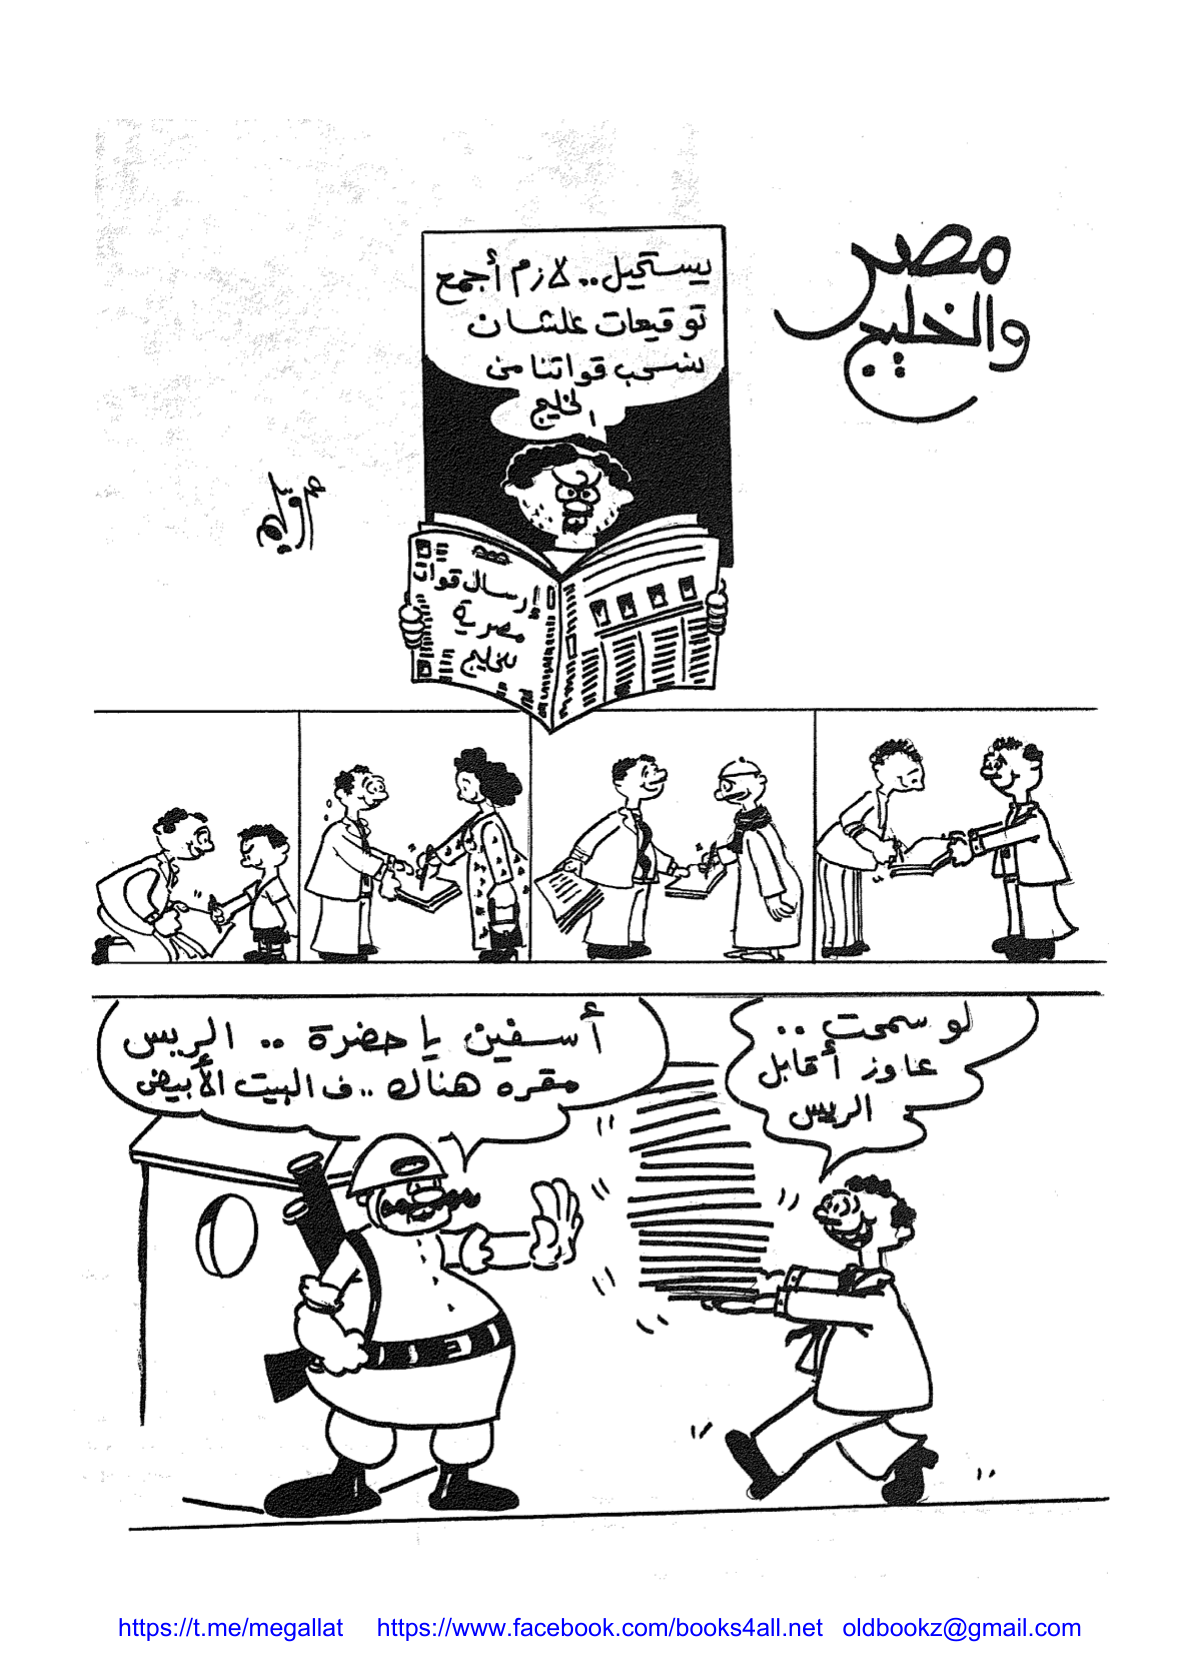 مصر
والخليج
يستحيل.. لازم أجمع
توقيعات علشان
نسحب قواتنا من
الخليج
إرسال قوات
مصرية
للخليج
لو سمحت ..
عاوز أقابل
الريس
أسفين يا حضرة .. الريس
مقره هناك .. ف البيت الأبيض
https://t.me/megallat https://www.facebook.com/books4all.net oldbookz@gmail.com